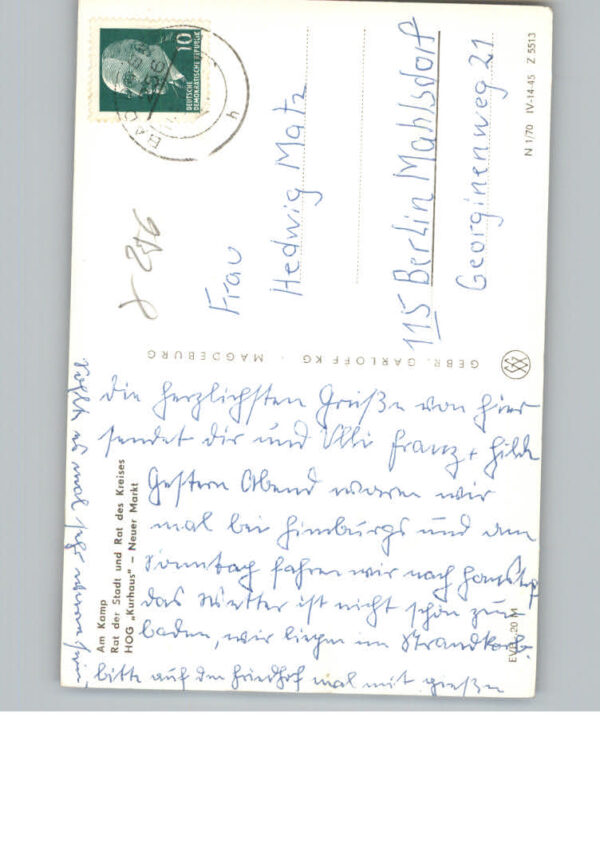 Die herzlichsten Grüße von hier
sendet dir und Ulli Franz + Hilde
Gestern Abend waren wir
mal bei Himburgs und am
Sonntag fahren wir nach
das Wetter ist nicht schön zum
baden, wir liegen im Strandkorb.
bitte auf den Friedhof mal mit gießen
Am Kamp
Rat der Stadt und Rat des Kreises
HOG „Kurhaus" – Neuer Markt
GEBR. GARLOFF KG · MAGDEBURG
Frau
Hedwig Matz
115 Berlin Mahlsdorf
Georginenweg 21
10
DEUTSCHE
DEMOKRATISCHE REPUBLIK
N 1/70 IV-14-45 Z 5513
20 M